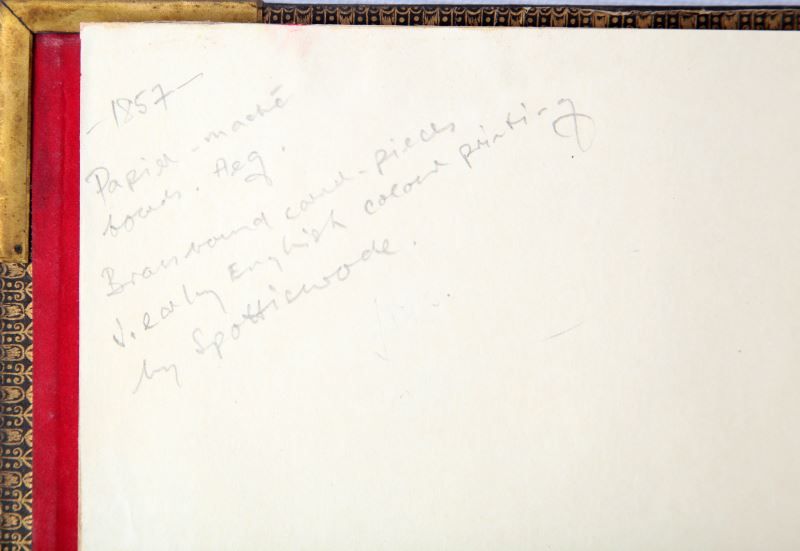 -1857-
Papier-maché
boards. Aeg.
Brassbound corner-pieces
V. early English colour printing
by Spottiswoode.